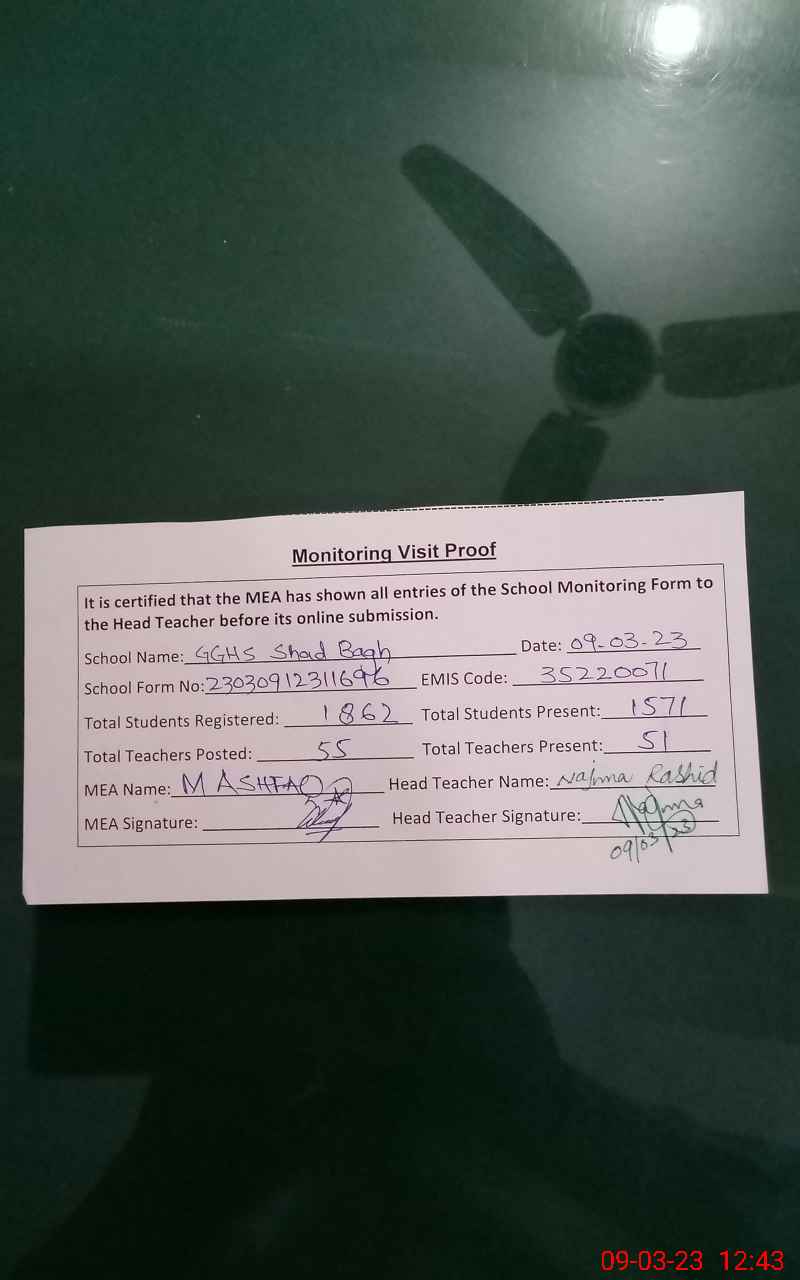 Monitoring Visit Proof
It is certified that the MEA has shown all entries of the School Monitoring Form to
the Head Teacher before its online submission.
School Name: GGHS Shad Bagh Date: 09-03-23
School Form No: 23030912311696 EMIS Code: 35220071
Total Students Registered: 1862 Total Students Present: 1571
Total Teachers Posted: 55 Total Teachers Present: 51
MEA Name: M ASHFAQ Head Teacher Name: Najma Rashid
MEA Signature: Head Teacher Signature: Najma
09/03/23
09-03-23 12:43